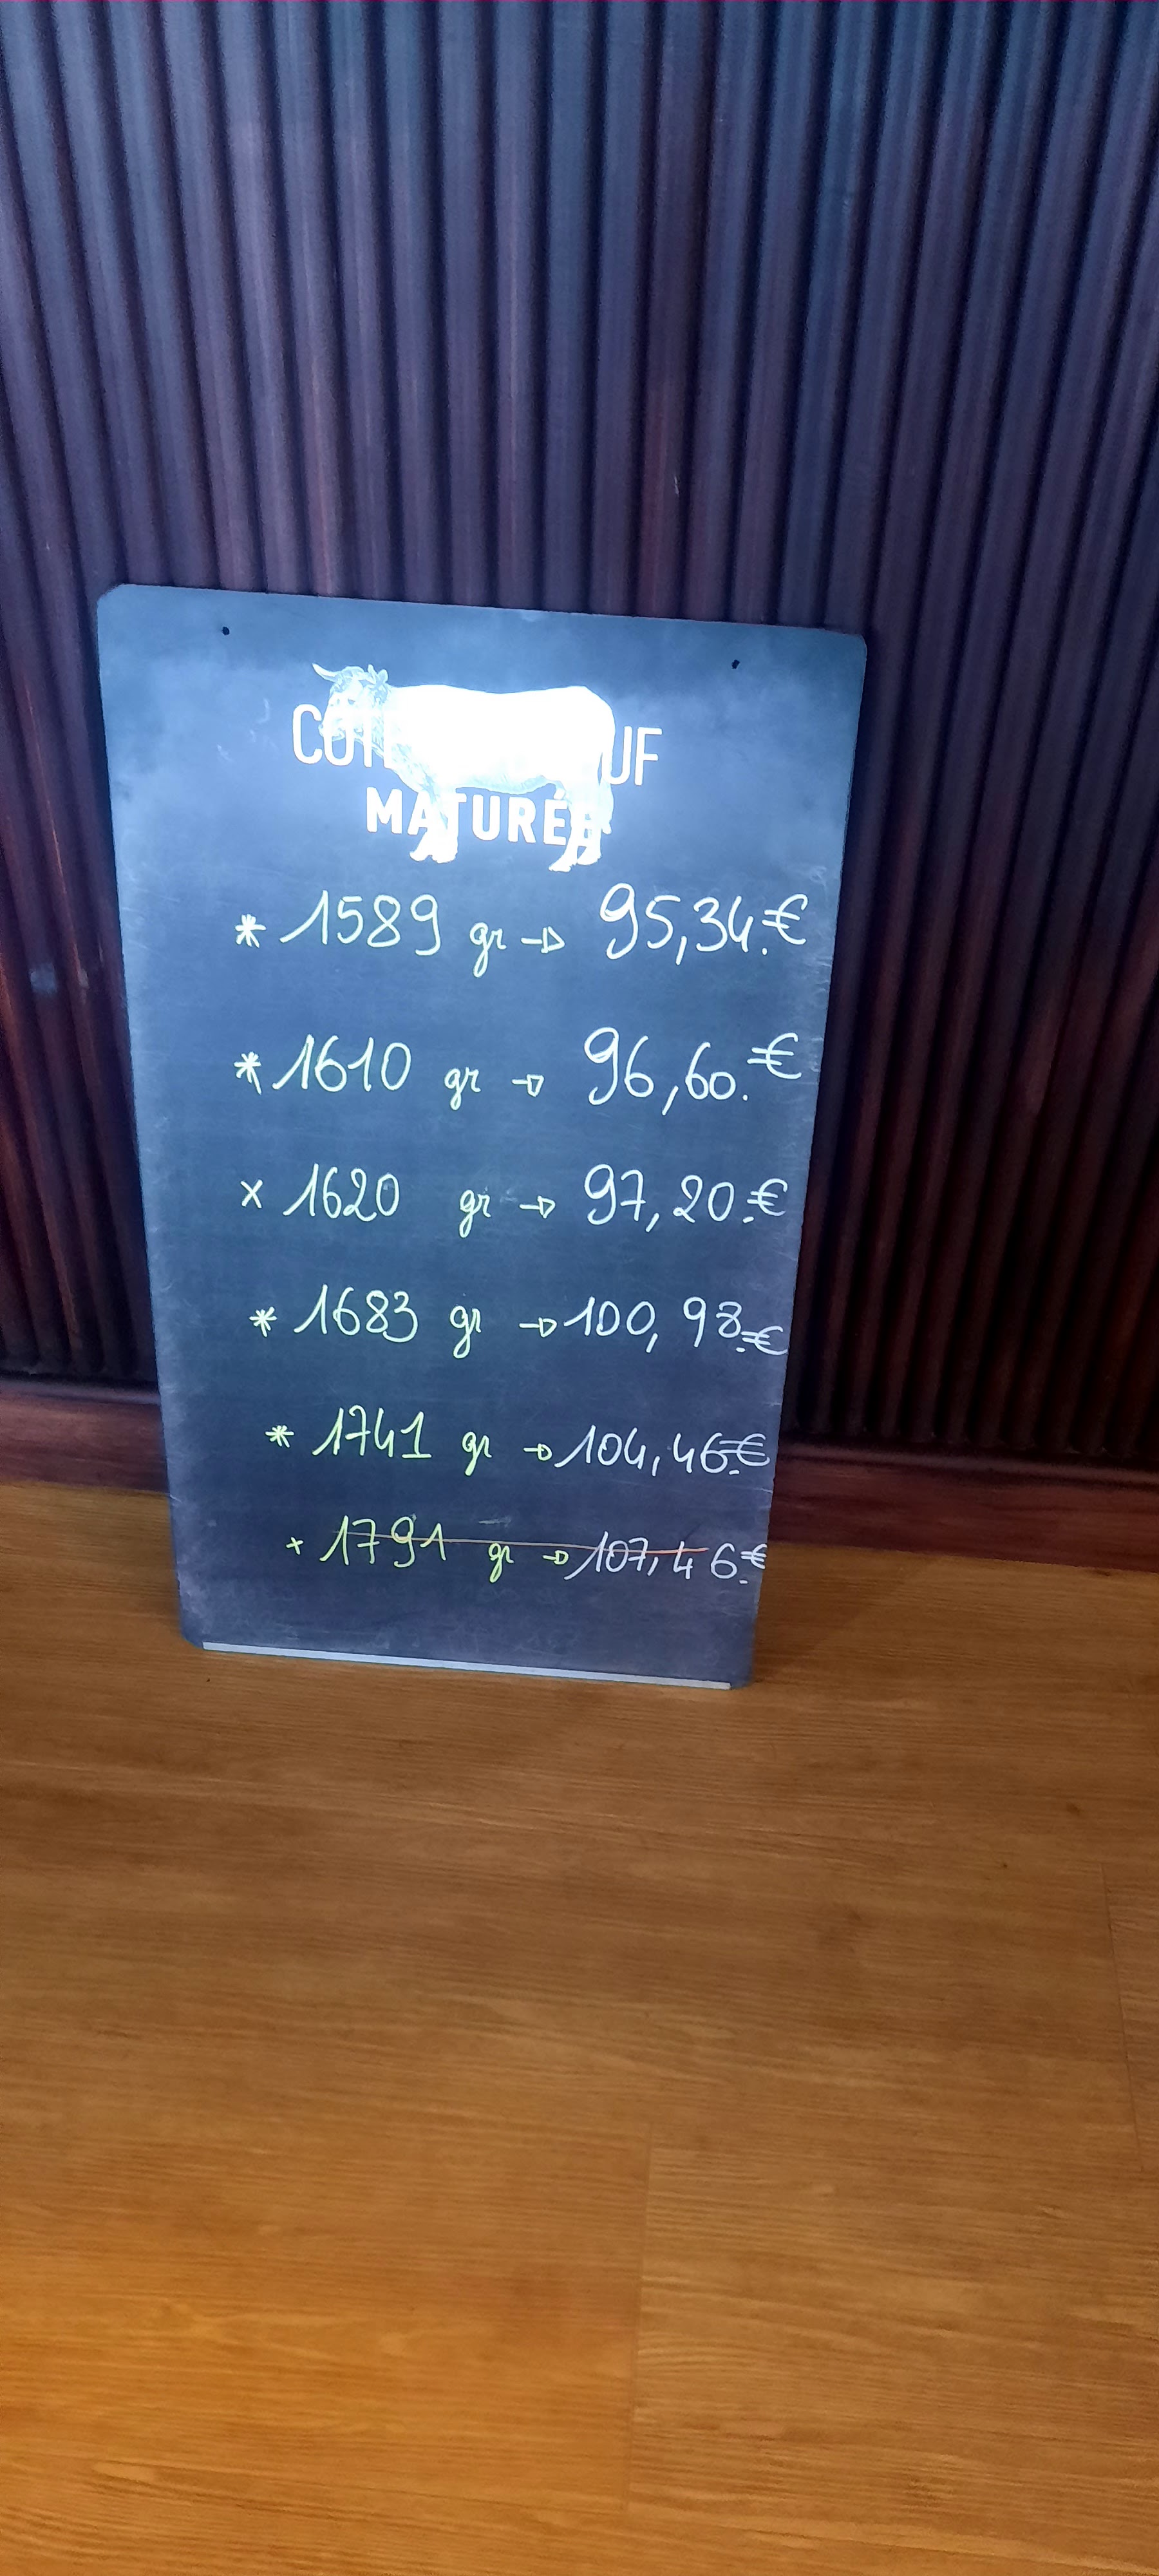 MATURÉE
* 1589 gr → 95,34.€
* 1610 gr → 96,60.€
x 1620 gr → 97,20.€
* 1683 gr → 100,98.€
* 1741 gr → 104,46.€
x 1791 gr → 107,46.€